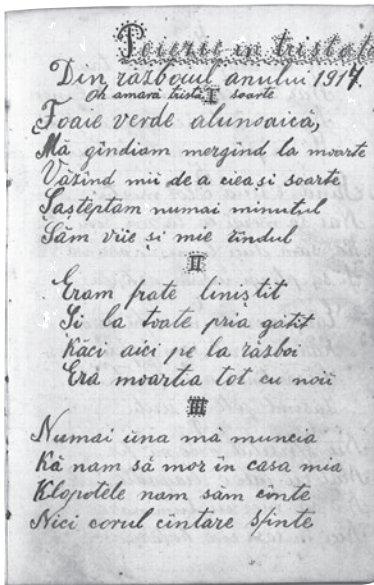 Poiezii in tristat
Din războiul anului 1917.
Oh amară tristă soarte
I
Foaie verde alunoaică,
Mă gîndiam mergînd la moarte
Văzînd mii de a cieași soarte
Șașteptam numai minutul
Săm vie și mie rîndul
II
Eram frate liniștit
Și la toate pria gătit
Kăci aici pe la război
Eră moartia tot cu noii
III
Numai üna mă muncia
Kă nam să mor în casa mia
Klopotele nam săm cînte
Nici corul cîntare sfinte